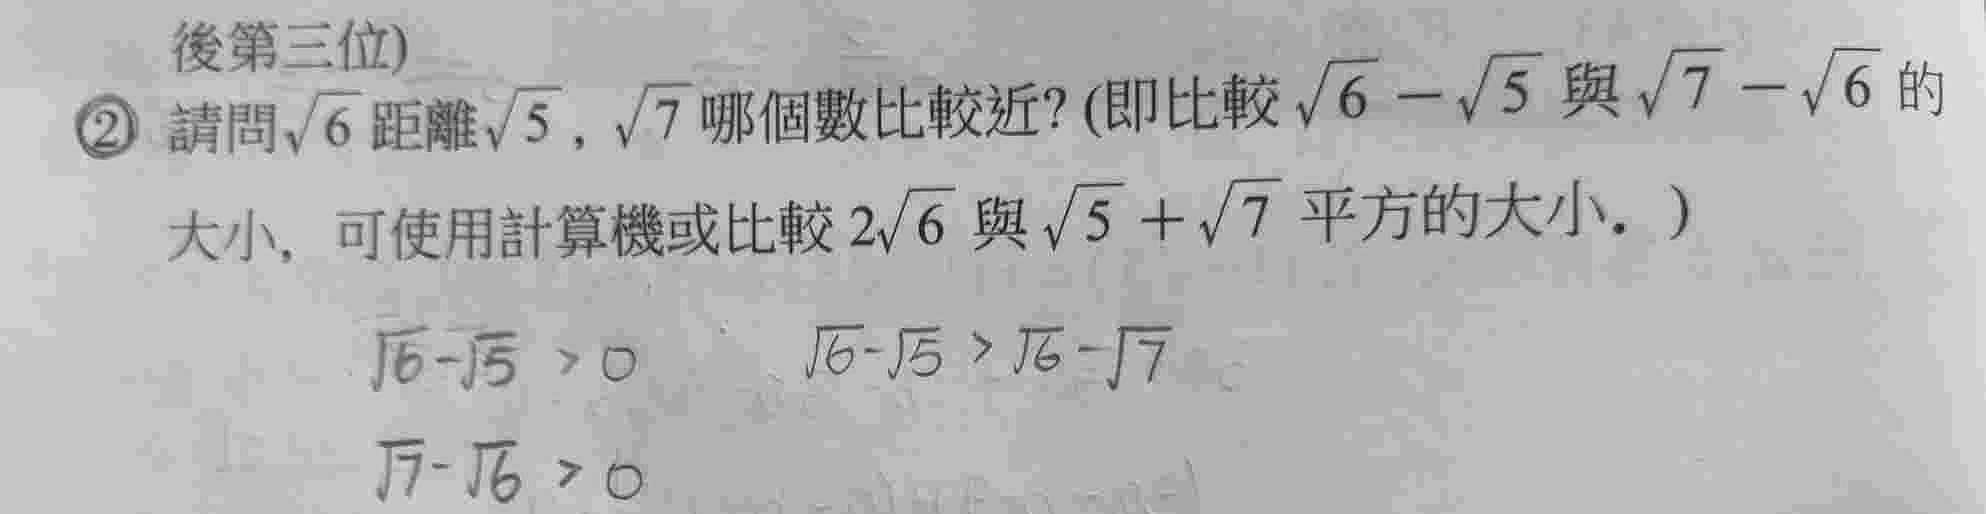 後第三位)
② 請問√6 距離√5 , √7 哪個數比較近? (即比較 √6 − √5 與 √7 − √6 的
大小, 可使用計算機或比較 2√6 與 √5 + √7 平方的大小. )
√6-√5 > 0 √6-√5 > √6-√7
√7-√6 > 0